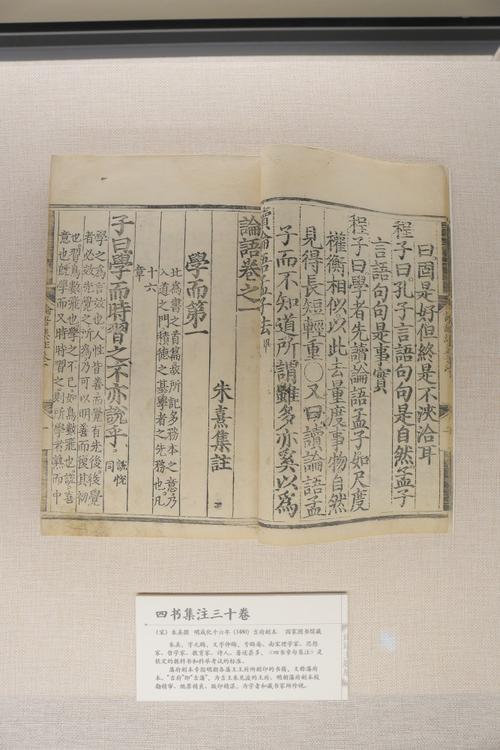 曰固是好但終是不浹洽耳
程子曰孔子言語句句是自然孟子
言語句句是事實
程子曰學者先讀論語孟子如尺度
權衡相似以此去量度事物自然
見得長短輕重〇又曰讀論語孟
子而不知道所謂雖多亦奚以爲
讀論語孟子法畢
論語卷之一
朱熹集註
學而第一
此爲書之首篇故所記多務本之意乃
入道之門積德之基學者之先務也凡
十六
章
子曰學而時習之不亦說乎
說悅
同
學之爲言效也人性皆善而覺有先後後覺
者必效先覺之所爲乃可以明善而復其初
也習鳥數飛也學之不已如鳥數飛也說喜
意也旣學而又時時習之則所學者熟而中
四书集注三十卷
(宋)朱熹撰 明成化十六年(1480)吉府刻本 国家图书馆藏
朱熹,字元晦,又字仲晦,号晦庵。南宋理学家、思想
家、哲学家、教育家、诗人。著述甚多,《四书章句集注》是
钦定的教科书和科举考试的标准。
藩府刻本专指明朝各藩王王府所刻印的书籍,又称藩府
本。"吉府"即"吉藩",为吉王朱见浚的王府。明朝藩府刻本校
勘精审,纸墨精良,版印精湛,为学者和藏书家所珍视。